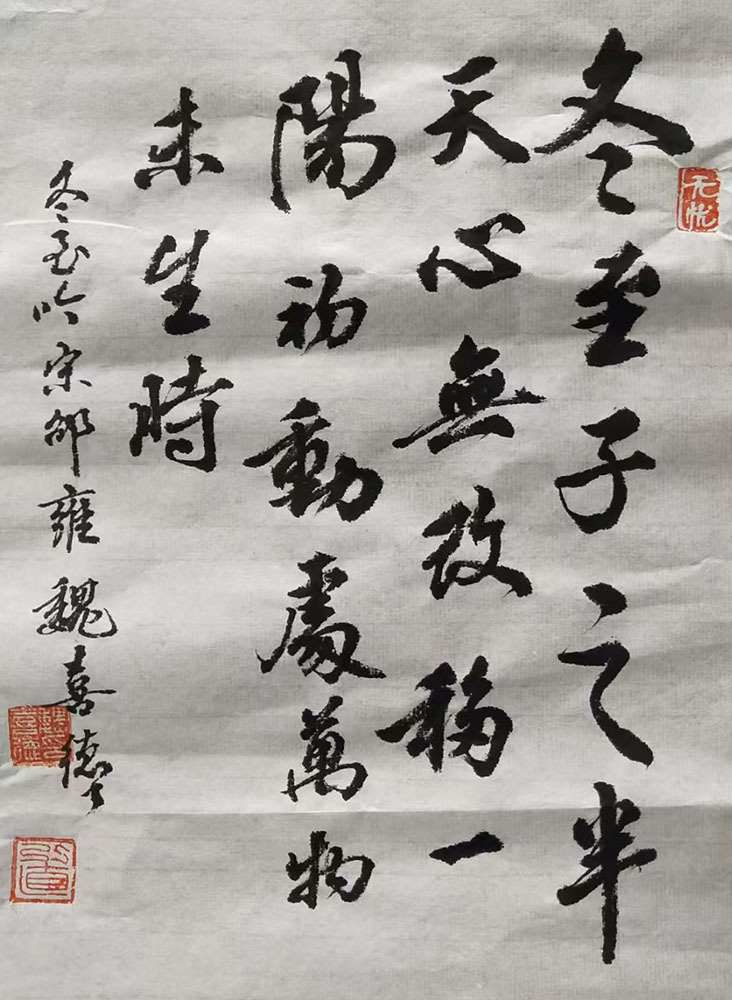 冬至子之半
天心無改移一
陽初動處萬物
未生時
冬至吟宋邵雍魏喜德书
无忧